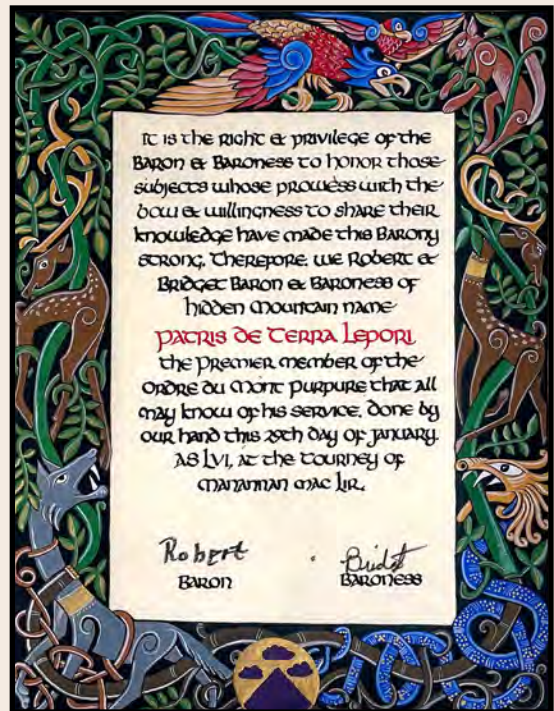 It is the right & privilege of the
Baron & Baroness to honor those
subjects whose prowess with the
bow & willingness to share their
knowledge have made this Barony
strong. Therefore, we Robert &
Bridget Baron & Baroness of
Hidden Mountain name
Patris de Terra Lepori,
the premier member of the
Ordre du Mont Purpure that all
may know of his service. Done by
our hand this 29th day of January,
AS LVI, at the Tourney of
Manannan Mac Lir.
Robert
Bridget
Baron
Baroness